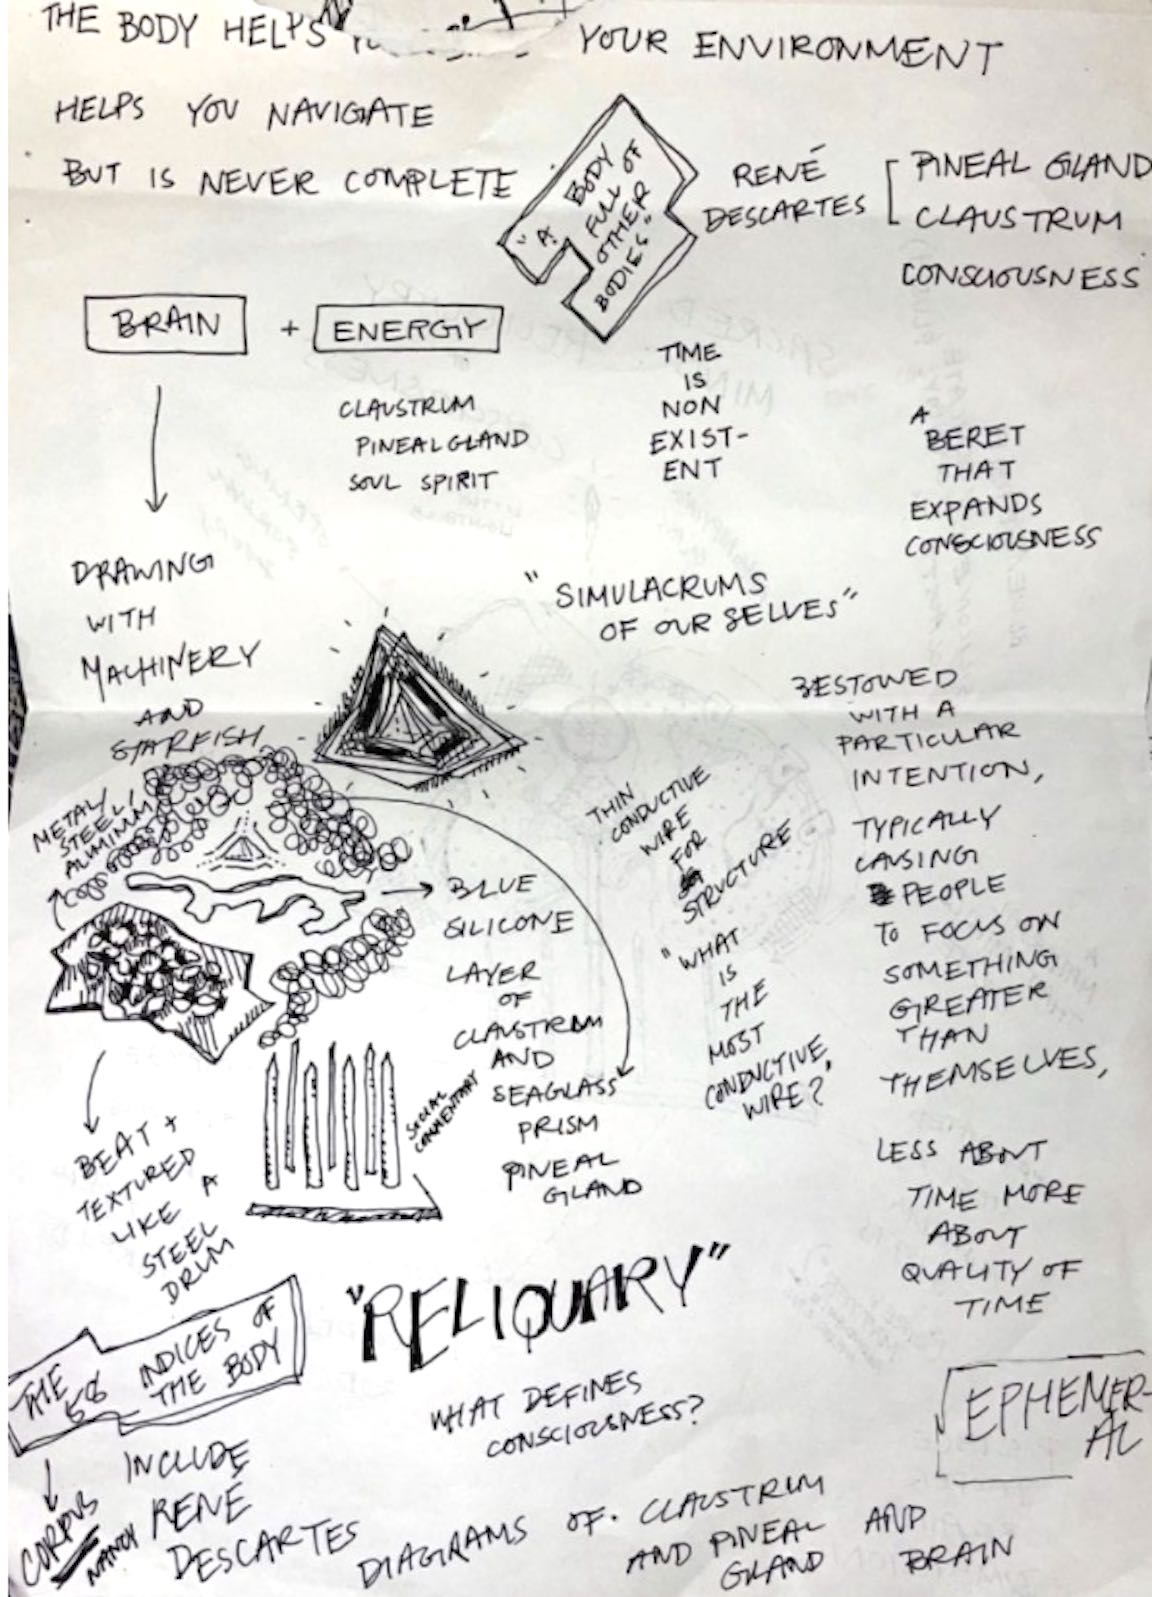 THE BODY HELPS
YOUR ENVIRONMENT
HELPS YOU NAVIGATE
BUT IS NEVER COMPLETE
"A BODY
FULL OF
OTHER
BODIES"
RENÉ
DESCARTES
PINEAL GLAND
CLAUSTRUM
CONSCIOUSNESS
BRAIN + ENERGY
CLAUSTRUM
PINEAL GLAND
SOUL SPIRIT
TIME
IS
NON
EXIST-
ENT
A
BERET
THAT
EXPANDS
CONSCIOUSNESS
DRAWING
WITH
MACHINERY
AND
STARFISH
"SIMULACRUMS
OF OUR SELVES"
METAL/
STEEL/
ALUMINM
BLUE
SILICONE
LAYER
OF
CLAUSTRUM
AND
SEAGLASS
PRISM
PINEAL
GLAND
THIN
CONDUCTIVE
WIRE
FOR
STRUCTURE
"WHAT
IS
THE
MOST
CONDUCTIVE
WIRE?
BESTOWED
WITH A
PARTICULAR
INTENTION,
TYPICALLY
CAUSING
PEOPLE
TO FOCUS ON
SOMETHING
GREATER
THAN
THEMSELVES,
LESS ABOUT
TIME MORE
ABOUT
QUALITY OF
TIME
SOCIAL
COMMENTARY
BEAT +
TEXTURED
LIKE A
STEEL
DRUM
"RELIQUARY"
THE
58 INDICES OF
THE BODY
WHAT DEFINES
CONSCIOUSNESS?
EPHEMER-
AL
CORPUS
NANCY
INCLUDE
RENÉ
DESCARTES
DIAGRAMS OF. CLAUSTRUM
AND PINEAL
GLAND
AND
BRAIN